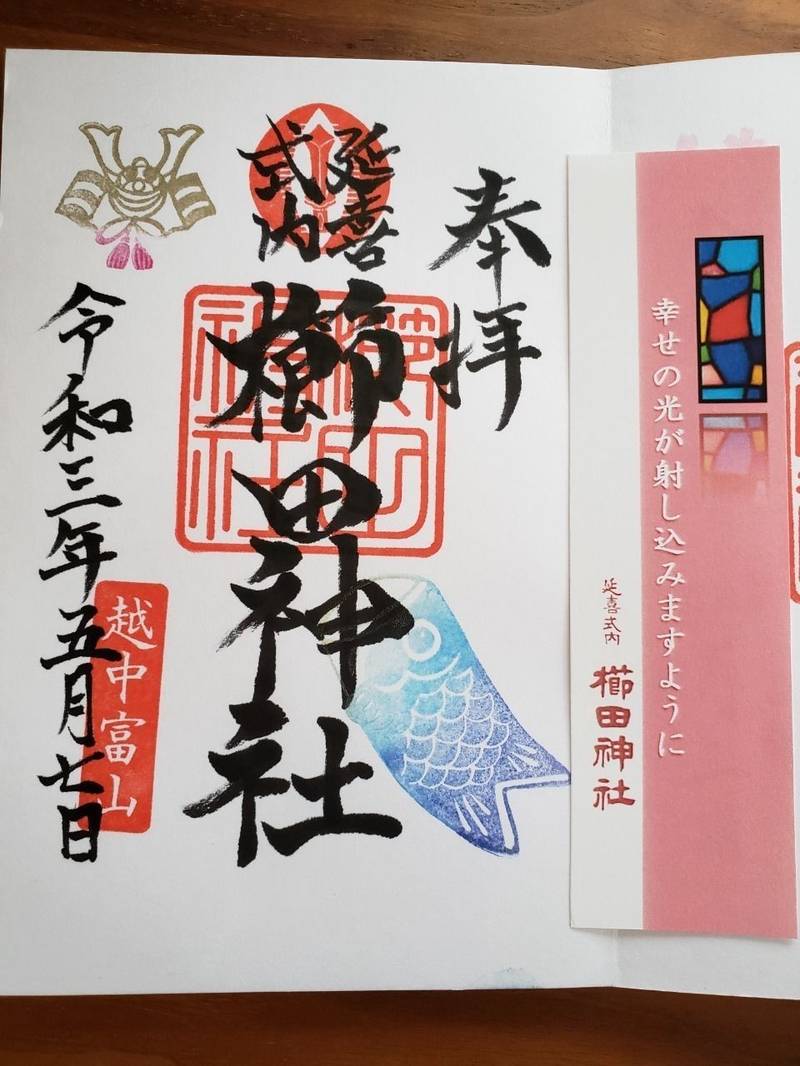 奉拝
延喜
式内
櫛田神社
令和三年五月七日
越中富山
幸せの光が射し込みますように
延喜式内
櫛田神社